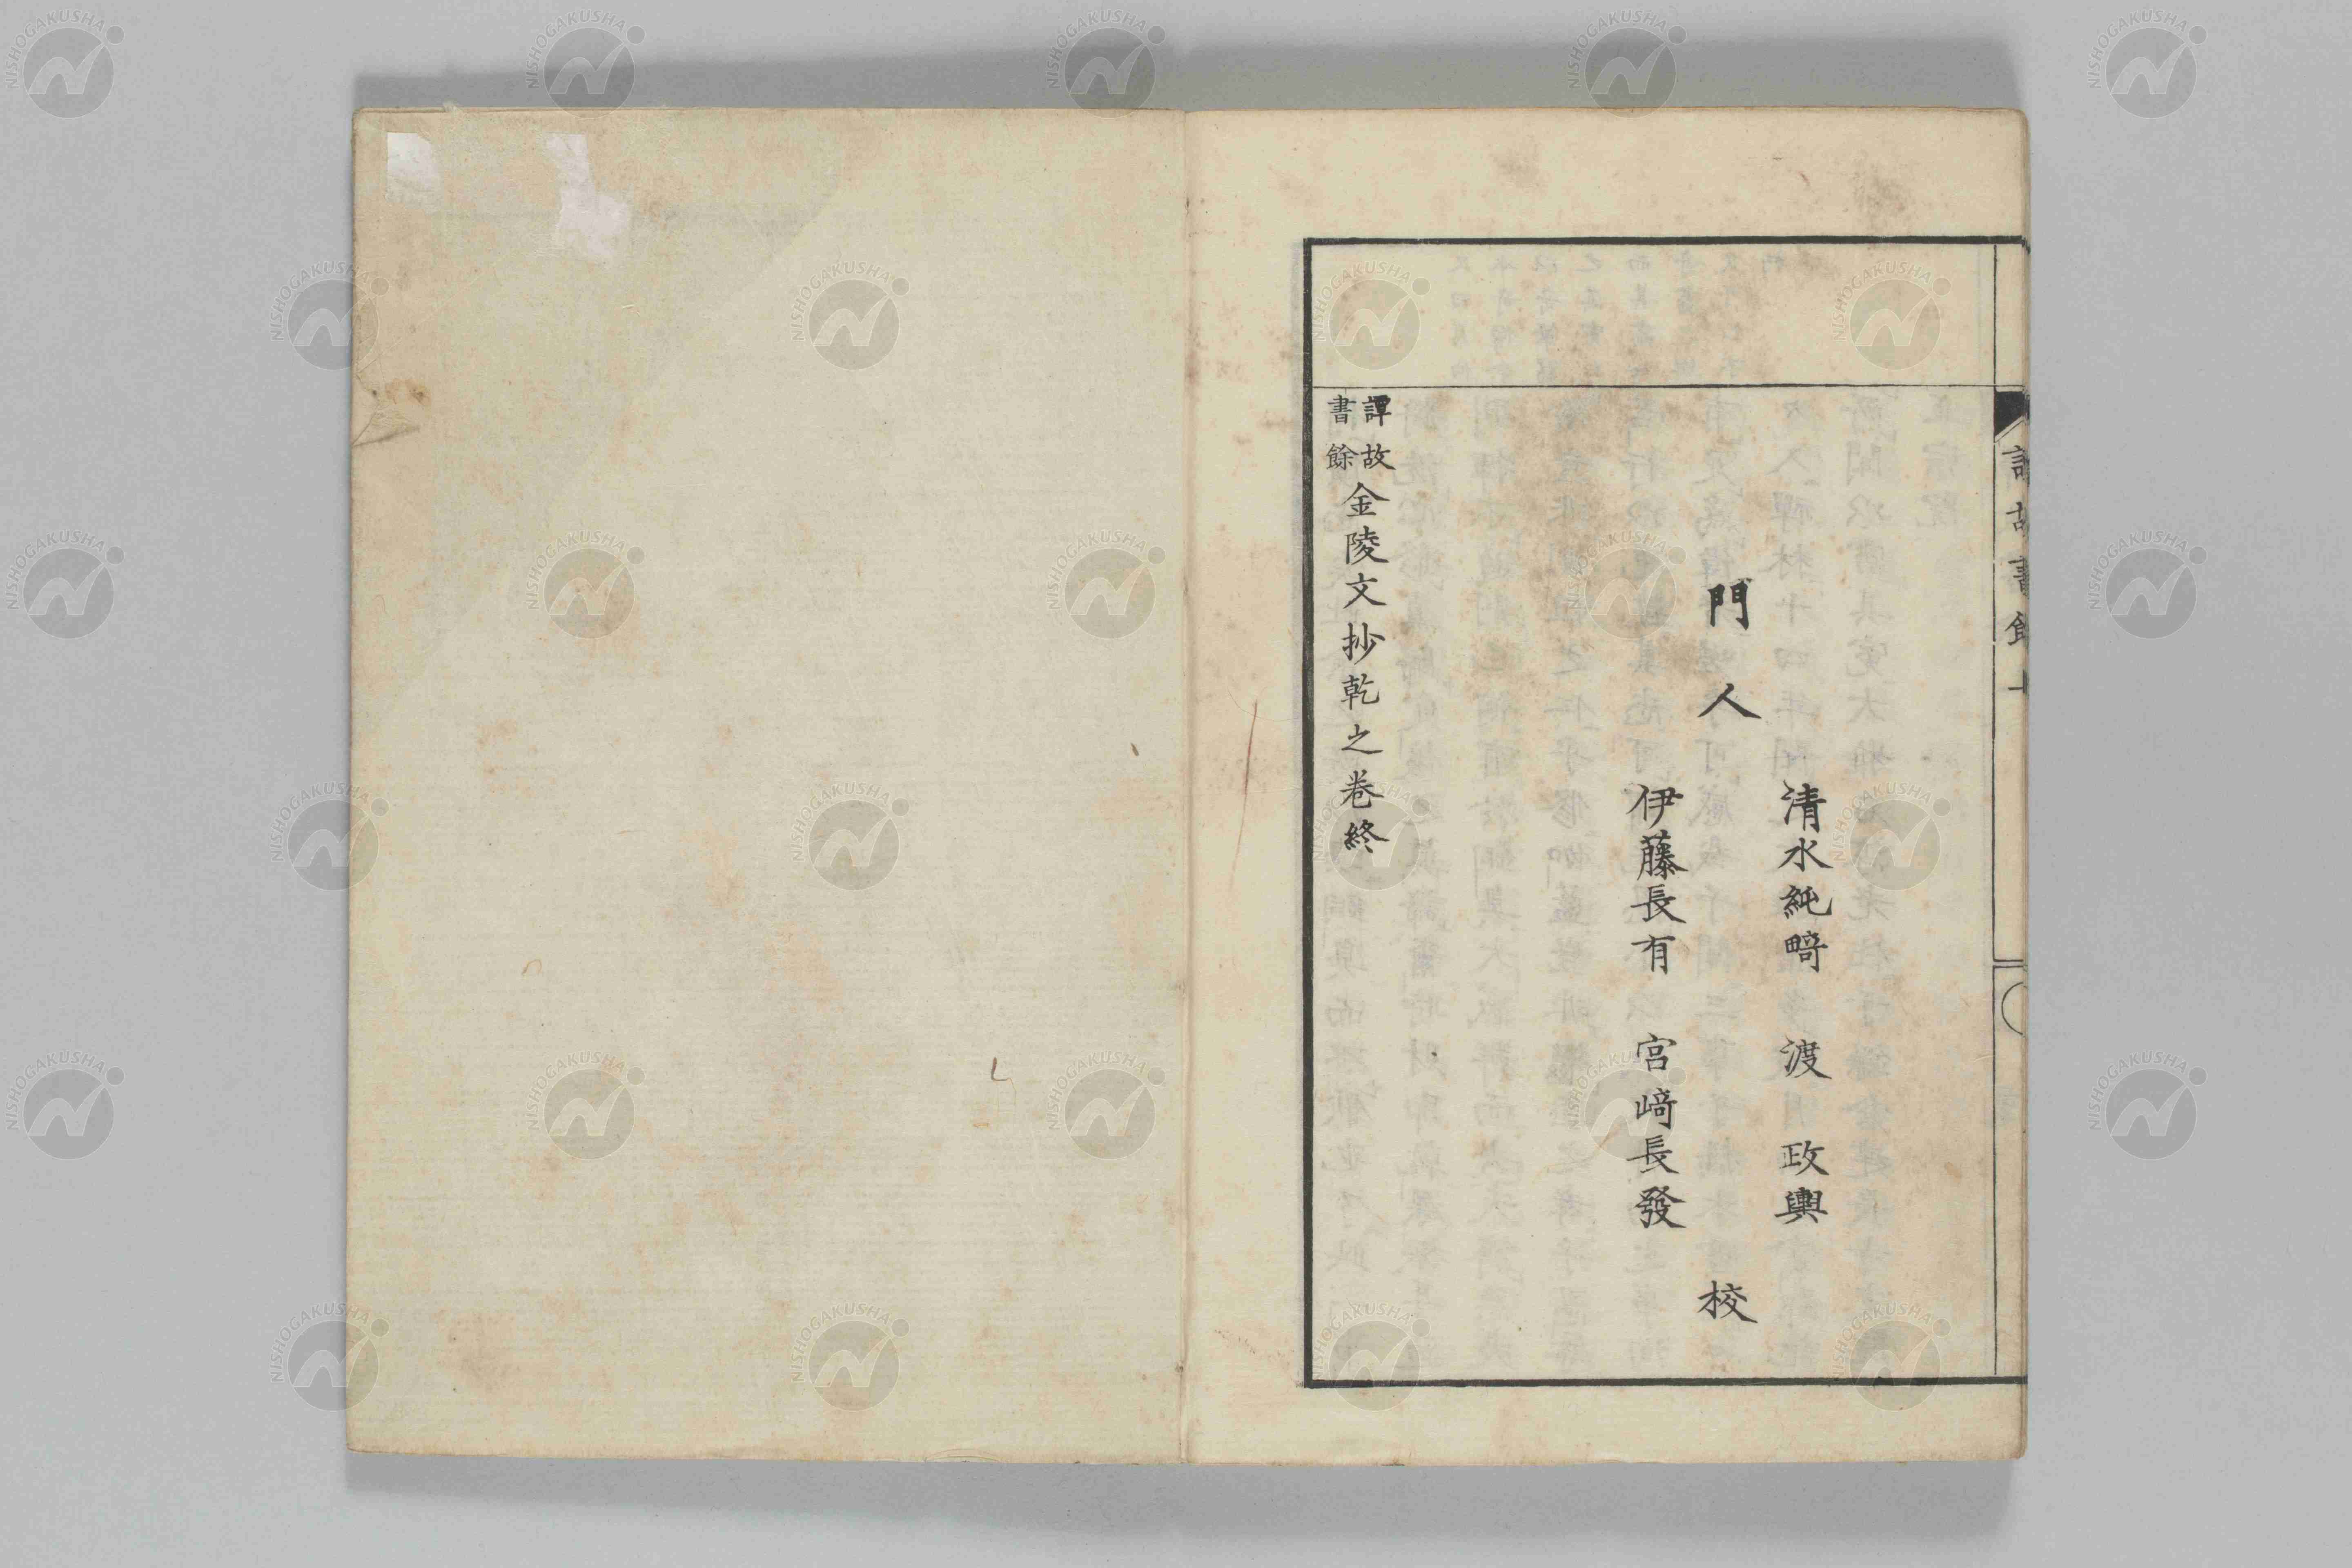 門人
清水純畸 渡 政輿
伊藤長有 宮﨑長發
校
譚故書餘 金陵文抄乾之巻終
NISHOGAKUSHA